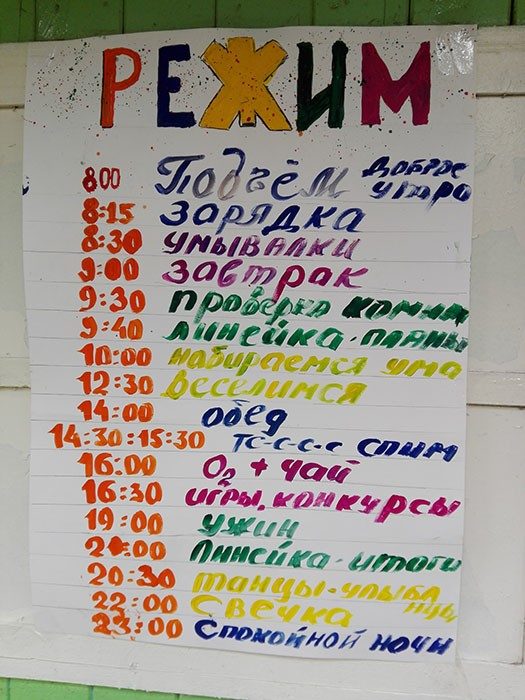 РЕЖИМ
8 00 Подъём доброе утро
8:15 зарядка
8:30 умывалки
9:00 завтрак
9:30 проверка комнат
9:40 линейка-планы
10:00 набираемся ума
12:30 веселимся
14:00 обед
14:30:15:30 тс-с-с-с спим
16:00 О₂ + чай
16:30 игры, конкурсы
19:00 ужин
20:00 Линейка-итоги
20:30 танцы-улыбанцы
22:00 Свечка
23:00 спокойной ночи